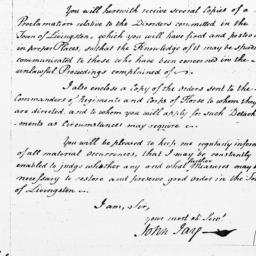 You will herewith receive several Copies of a
Proclamation relative to the Disorders committed in the
Town of Livingston, which you will have fixed and posted
in proper Places, so that the Knowledge of it may be
communicated to those who have been concerned in the
unlawful Proceedings complained of
I also enclose a Copy of the orders sent to the
Commanders of Regiments and Corps of Horse to whom they
are directed, and to whom you will apply for such Detach
ments as Circumstances may require
You will be pleased to keep me regularly inform
of all material occurrences, that I may be constantly
enabled to judge whether any and what further Measures may
necessary to restore and preserve good order in the
of Livingston
I am, Sir,
your most ob Serv.t
John Jay